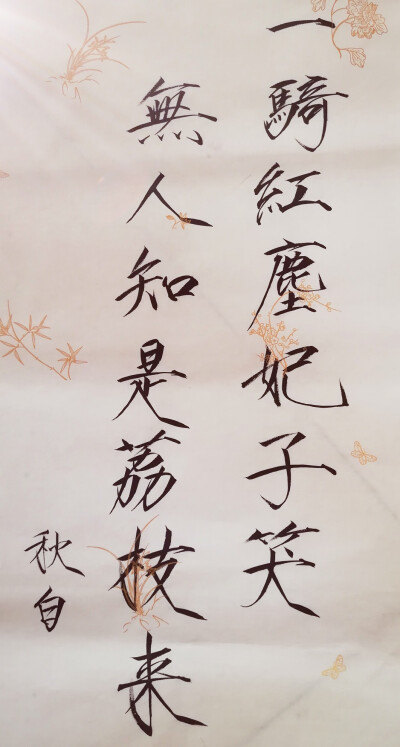 一騎紅塵妃子笑
無人知是荔枝来
秋自